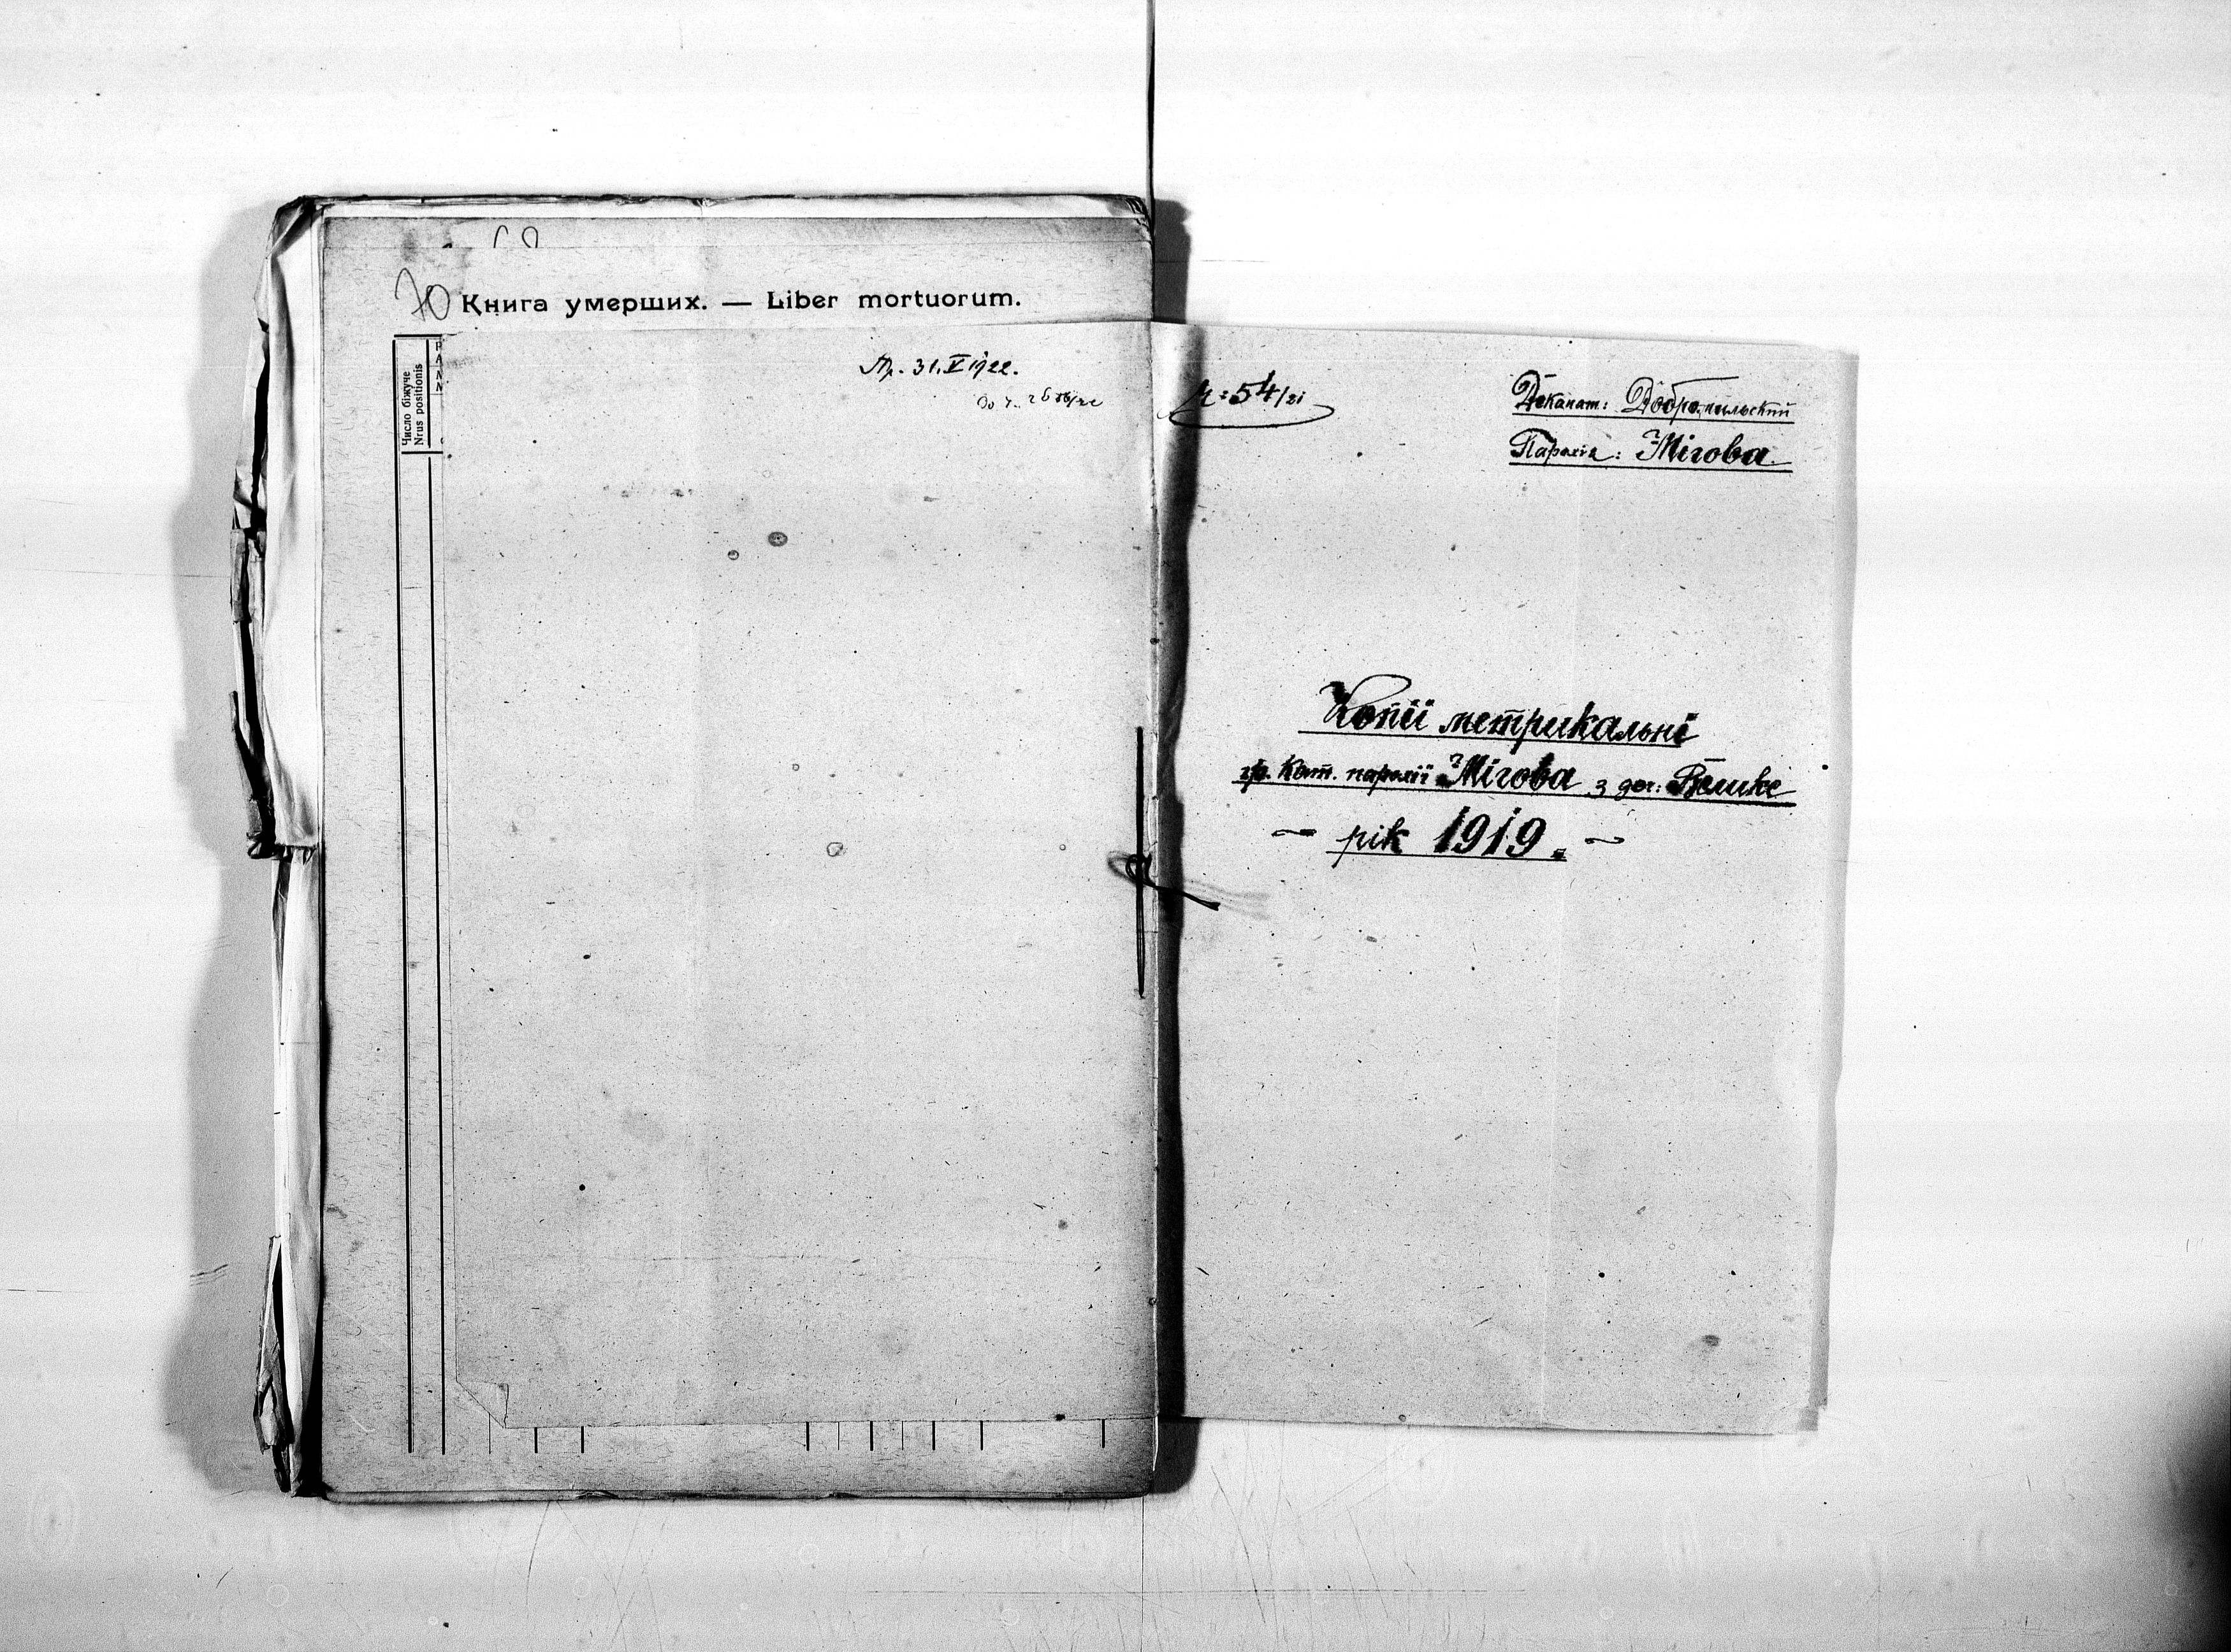 70 Книга умерших. — Liber mortuorum.
Число біжуче
Nrus positionis
Пр. 31. V 1922.
ч: 54/21
Деканат: Добромильский
Парохія: Мігова.
Копії метрикальні
гр. кат. парохії Мігова з доч: Велике
~ рік 1919. ~